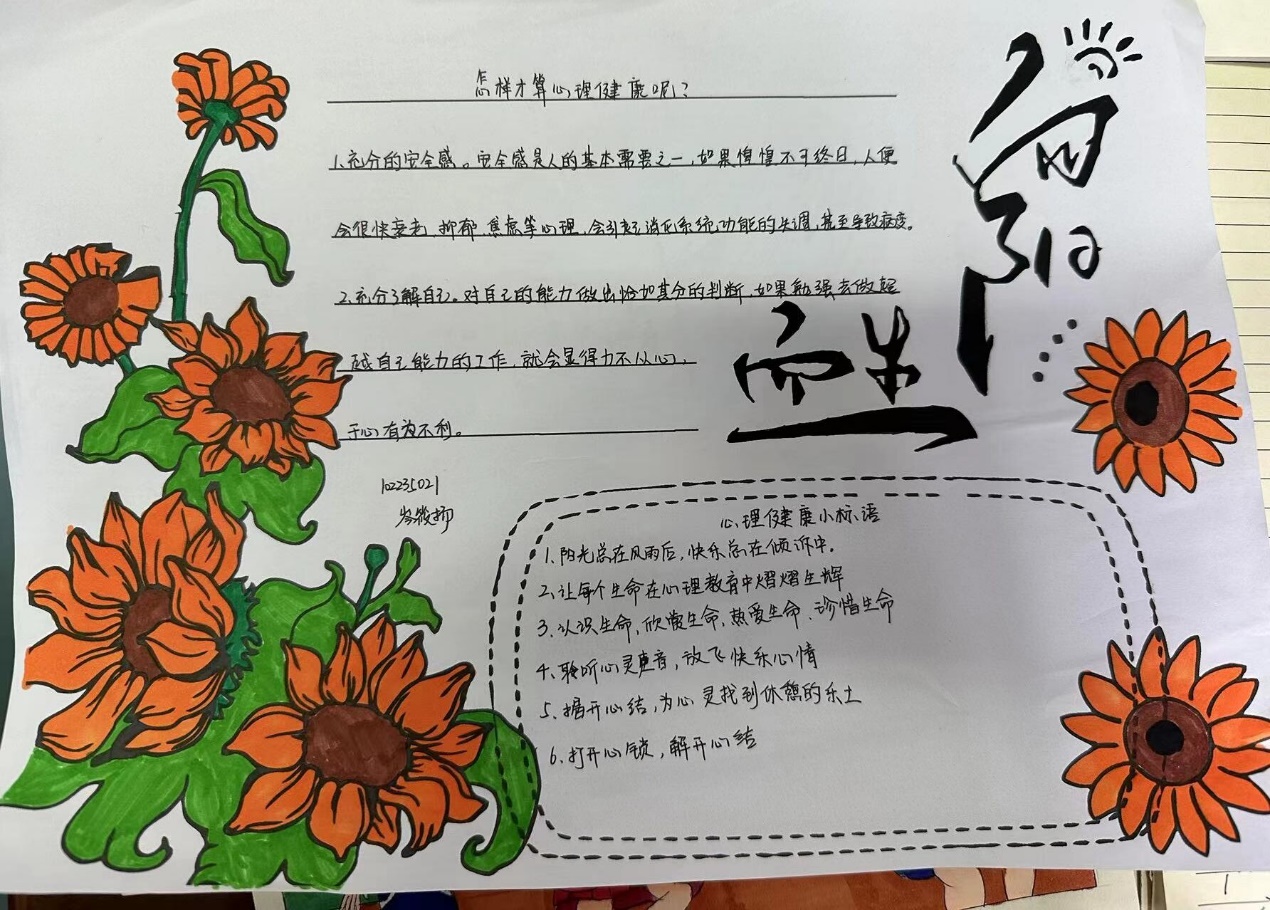 怎样才算心理健康呢?
1.充分的安全感。安全感是人的基本需要之一,如果惶惶不可终日,人便
会很快衰老,抑郁、焦虑等心理,会引起消化系统功能的失调,甚至导致病变。
2.充分了解自己。对自己的能力做出恰如其分的判断,如果勉强去做超
越自己能力的工作,就会显得力不从心,
于心有为不利。
向阳
而生
10223502
心理健康小标语
1.阳光总在风雨后,快乐总在倾诉中。
2.让每个生命在心理教育中熠熠生辉
3.认识生命,欣赏生命,热爱生命、珍惜生命
4.聆听心灵声音,放飞快乐心情
5.捂开心结,为心灵找到休憩的乐土
6.打开心锁,解开心结